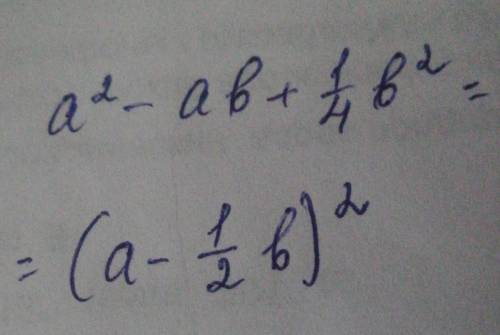 a² - ab + 1/4 b² =
= (a - 1/2 b)²